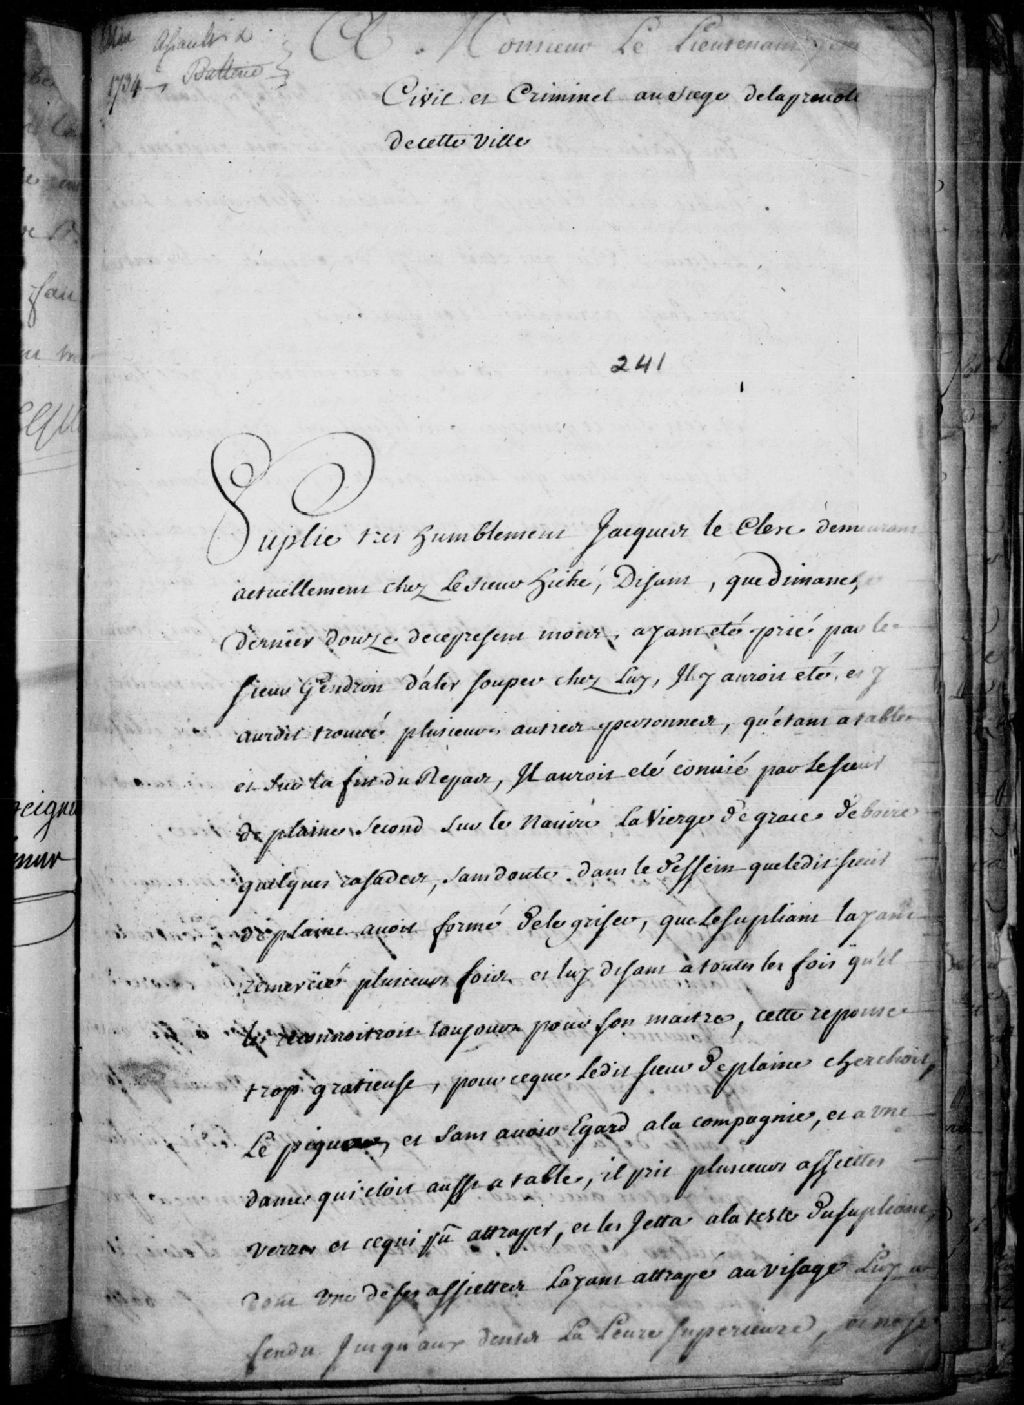 1734
A Monsieur Le Lieutenant
Civil et Criminel au siege delaprevoté
decette Ville
241
Suplie tres humblement Jacques le Clerc demeurant
actuellement chez Lesieur hiché, Disant, que dimanche
dernier douze decepresent mois, ayant eté prié par le
sieur Gendron d'aler souper chez Luy, Il y auroit eté, et y
auroit trouvé plusieurs autres personnes, qu'étant atable
et sur la fin du Repas, Il auroit eté convié par Lesieur
deplaine second sur le Navire LaVierge de grace de boire
quelques rasades, sans doute dans le dessein queledit sieur
deplaine avoit formé dele griser, que Lesupliant layant
remercié plusieurs fois et luy disant a toutes les fois qu'il
le reconnoitroit toujours pour son maitre, cette reponse
trop gratieuse, pour ceque Ledit sieur Deplaine cherchoit,
Le piqua, et sans avoir Egard ala compagnie, et a une
dame qui etoit aussi a table, il prit plusieurs assiettes
verres et cequi pû attraper, et les Jetta ala teste Dusupliant,
dont une de ses assiettes Layant attrapé au visage Luy a
fendu Jusqu'aux dents La Levre superieure,